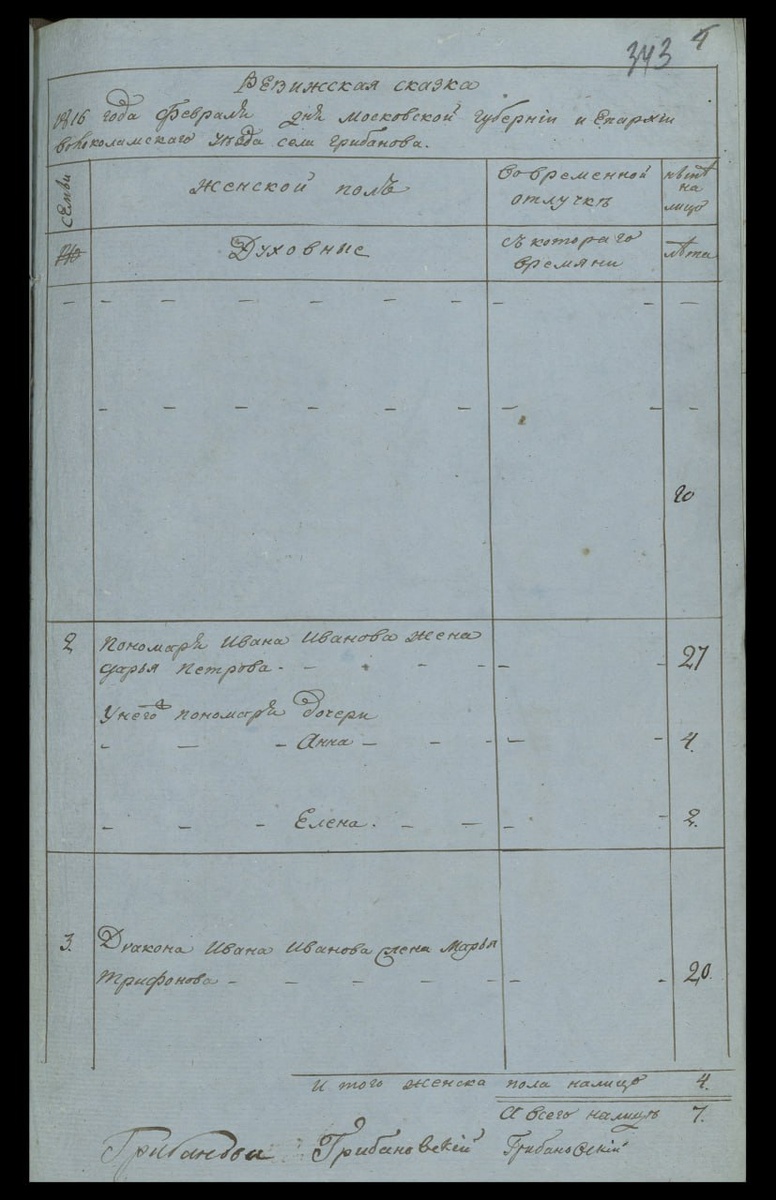 343 4
Ревижская сказка
1816 года Февраля дня Московской Губернiи и Епархiи
Волоколамскаго уѣзда села Грибанова.
Семьи
Женской полъ
Во временной
отлучкѣ
нынѣ
на
лицо
Духовные
съ котораго
времяни
лѣта
20
2 Пономаря Ивана Иванова жена
Дарья Петрова - 27
У него пономаря дочери
Анна - 4.
Елена. 2.
3. Диакона Ивана Иванова жена Марья
Трифонова - 20.
И того женска пола налицо 4.
А всего налицо 7.
Грибановскiй Грибановскiй